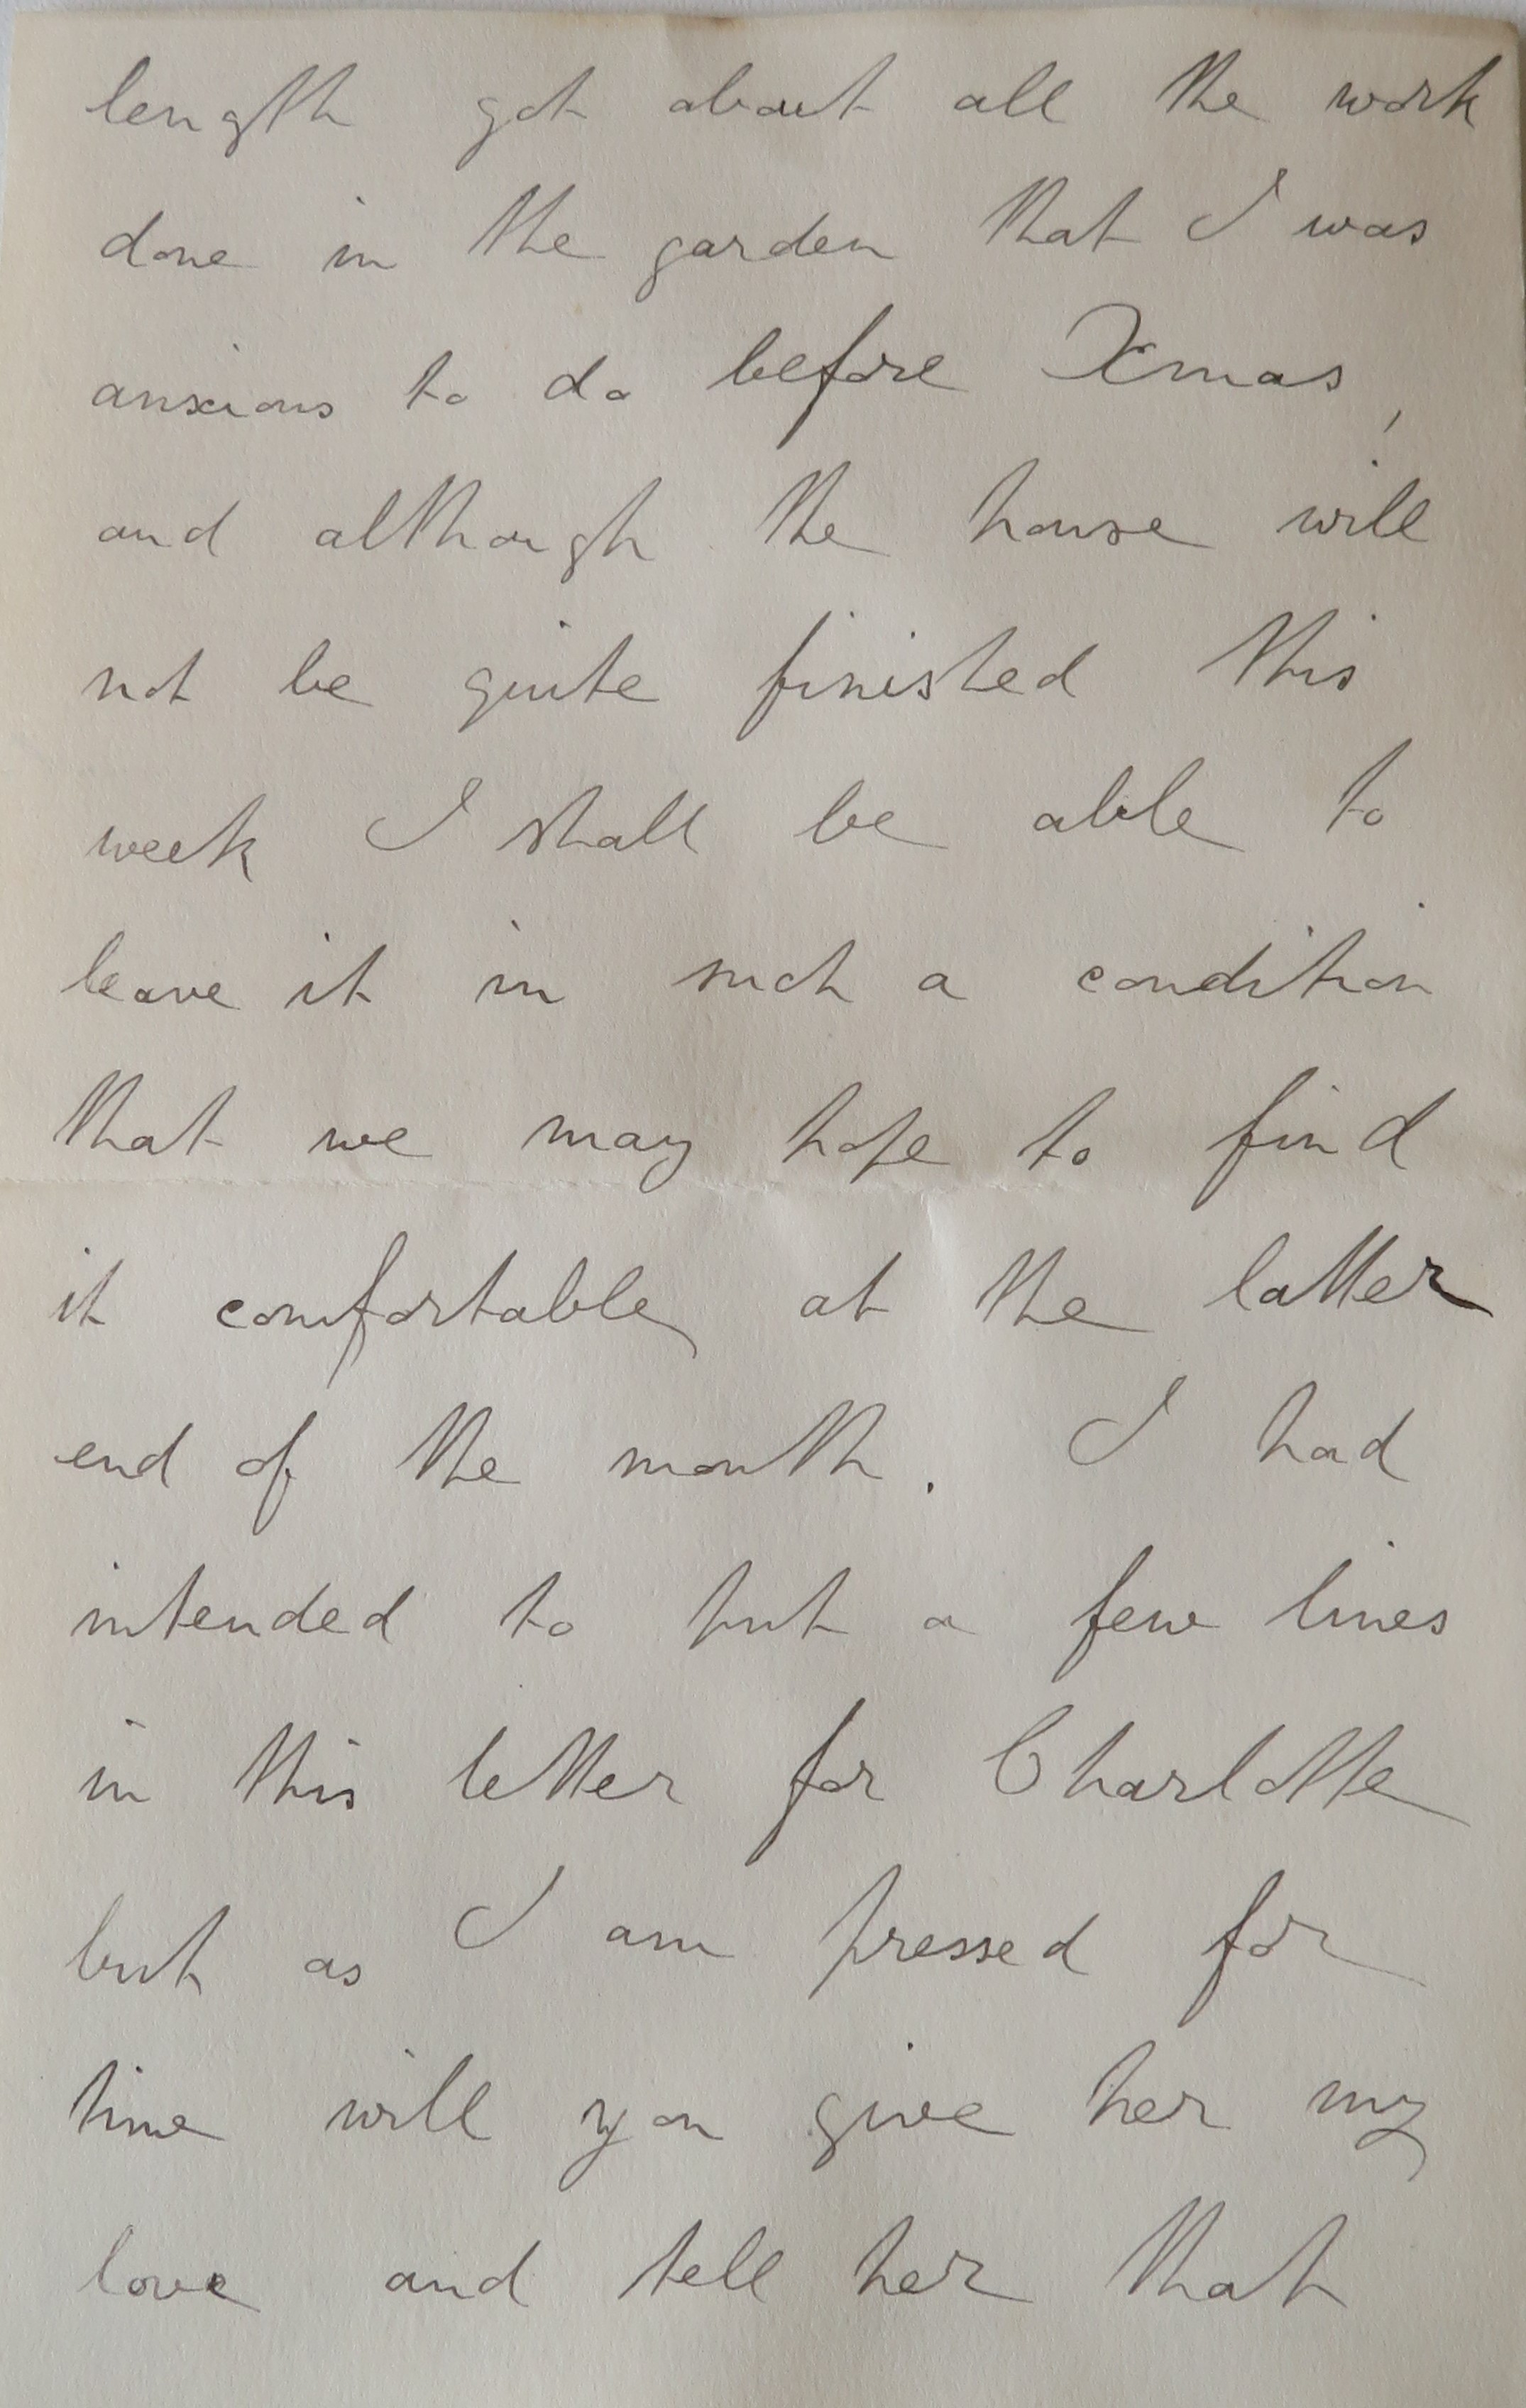 length got about all the work
done in the garden that I was
anxious to do before Xmas,
and although the house will
not be quite finished this
week I shall be able to
leave it in such a condition
that we may hope to find
it comfortable at the latter
end of the month. I had
intended to put a few lines
in this letter for Charlotte
but as I am pressed for
time will you give her my
love and tell her that